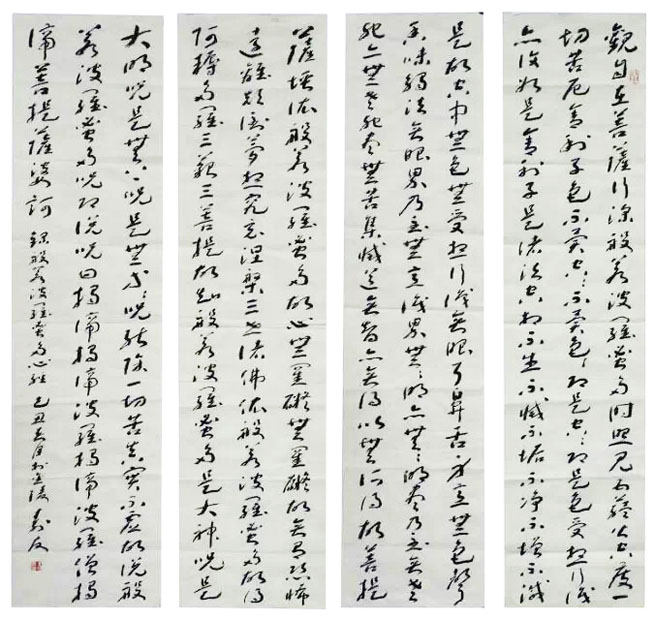 觀自在菩薩行深般若波羅蜜多時照見五蘊皆空度一
切苦厄舍利子色不異空〻不異色〻即是空〻即是色受想行識
亦復如是舍利子是諸法空相不生不滅不垢不淨不增不減
是故空中無色無受想行識無眼耳鼻舌身意無色聲
香味觸法無眼界乃至無意識界無〻明亦無〻明盡乃至無老
死亦無老死盡無苦集滅道無智亦無得以無所得故菩提
薩埵依般若波羅蜜多故心無罣礙無罣礙故無有恐怖
遠離顛倒夢想究竟涅槃三世諸佛依般若波羅蜜多故得
阿耨多羅三藐三菩提故知般若波羅蜜多是大神咒是
大明咒是無上咒是無等〻咒能除一切苦真實不虛故說般
若波羅蜜多咒即說咒曰揭諦揭諦波羅揭諦波羅僧揭
諦菩提薩婆訶 錄般若波羅蜜多心經 己丑 月於金陵 友